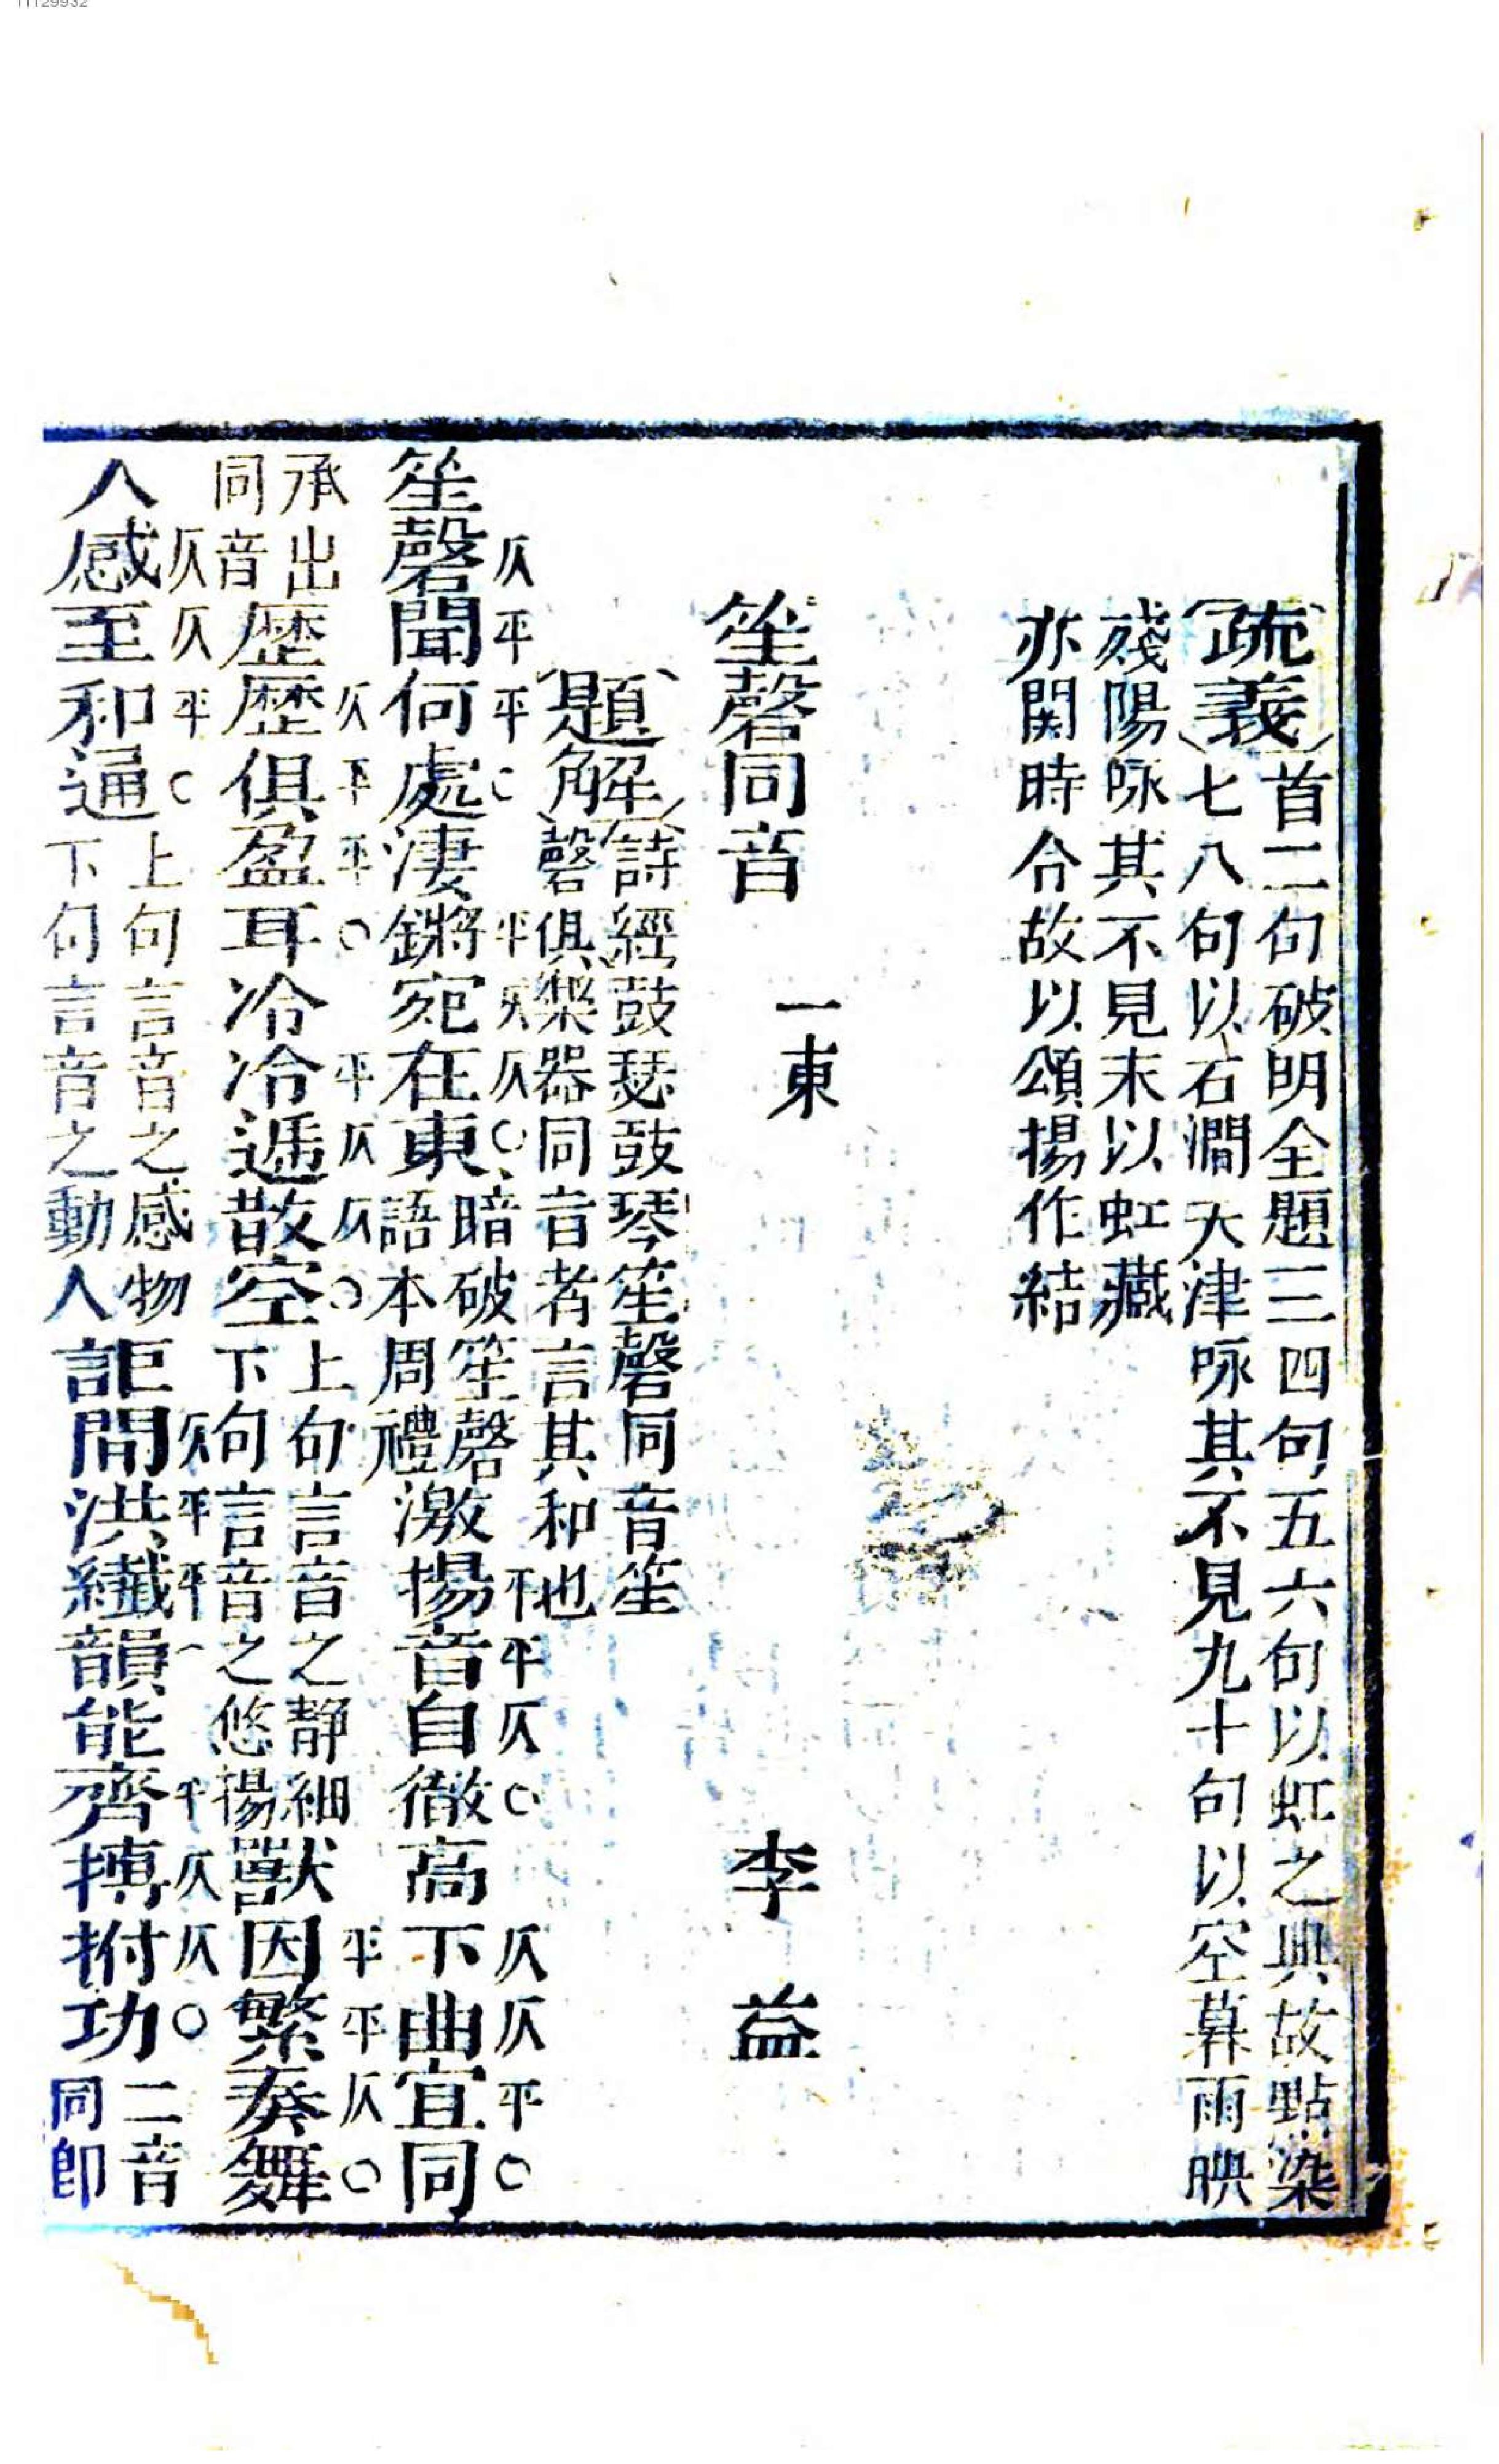 疏義首二句破明全題三四句五六句以虹之典故點染
七八句以石澗天津咏其不見九十句以空暮雨映
殘陽咏其不見末以虹藏
亦関時令故以頌揚作結
笙磬同音 一東 李益
題解詩經鼓瑟鼓琴笙磬同音笙
磬俱樂器同音者言其和也
仄平平○平仄仄○平平仄○仄仄平○
笙磬聞何處淒鏘宛在東暗破笙磬語本周禮激揚音自徹高下曲宜同
仄平平○平仄仄○平平仄○
承出同音歷歷俱盈耳冷冷遞散空上句言音之靜細下句言音之悠揚獸因繁奏舞
仄仄平○仄平平平仄仄○
人感至和通上句言音之感物下句言音之動人詎間洪纖韻能齊搏拊功二音同即